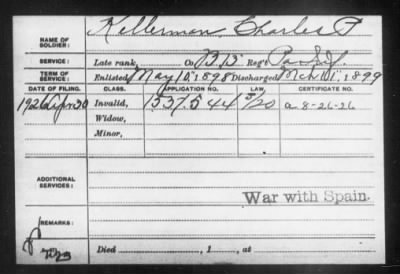 NAME OF SOLDIER: Kellerman, Charles P
SERVICE: Late rank, Co B, 13 Reg't Pa. Inf.
TERM OF SERVICE: Enlisted May 10, 1898 Discharged Mch 11, 1899
DATE OF FILING. CLASS. APPLICATION NO. LAW. CERTIFICATE NO.
1926 Apr 30 Invalid, 1537544 5/20 a 8-26-26
Widow,
Minor,
ADDITIONAL SERVICES:
War with Spain.
REMARKS:
Died , 1 , at